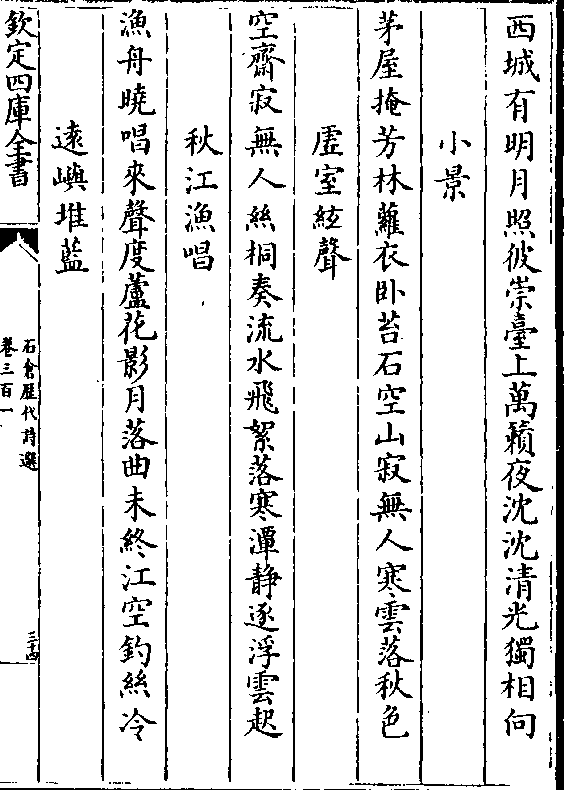 西城有明月照彼崇臺上萬籟夜沈沈清光獨相向
小景
茅屋掩芳林蘿衣卧苔石空山寂無人寒雲落秋色
虛室絃聲
空齋寂無人絲桐奏流水飛絮落寒潭静逐浮雲起
秋江漁唱
漁舟曉唱來聲度蘆花影月落曲未終江空釣絲冷
遠嶼堆藍
欽定四庫全書
石倉歷代詩選
卷三百一
三十四